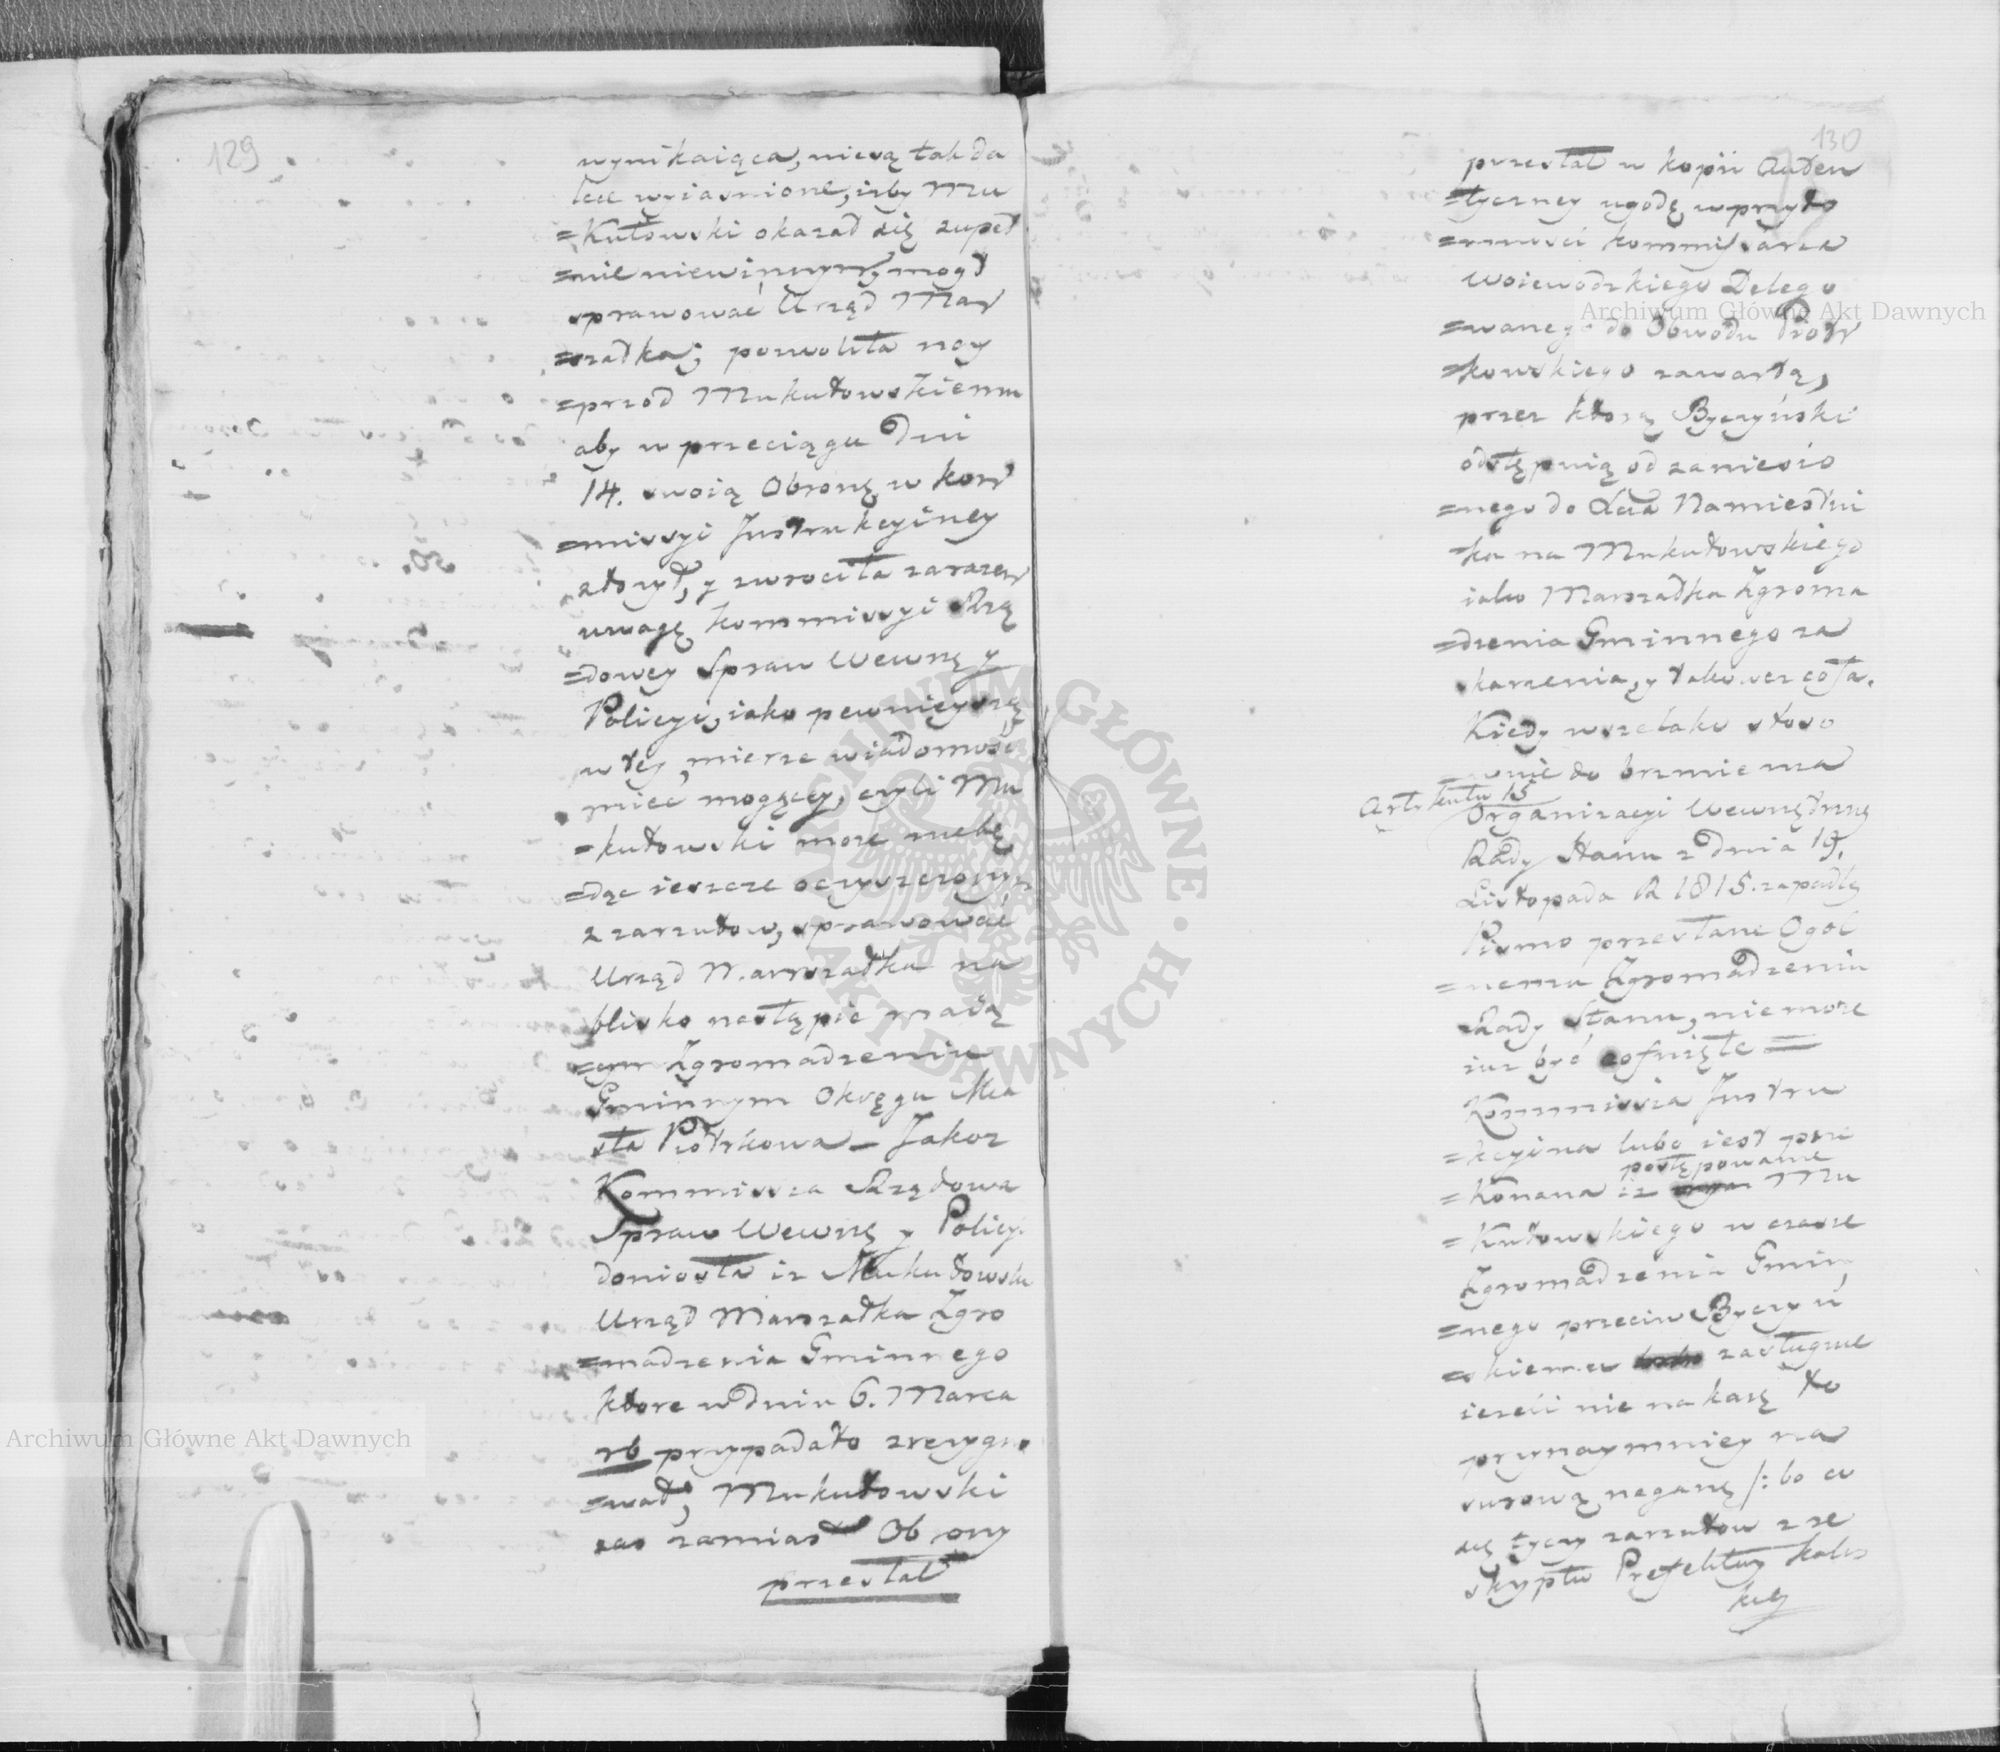 129
wynikaiąca, niesą tak da
lece wyiasnione, iżby Mu
=kułowski okazał się zupeł
=nie niewinnym, mogł
sprawować Urząd Mar
=szałka; pozwoliła nay
=przod Mukułowskiemu
aby w przeciągu Dni
14. swoią Obronę w kom
=missyi Instrukcyiney
złożył, y zwrociła zarazem
uwagę kommissyi Rzą
=dowey Spraw Wewnę y
Policyi, iako pewnieyszą
w tey mierze wiadomość
mieć mogącey, czyli Mu
=kułowski może niebę
=dąc ieszcze oczyszczonym
z zarzutow, sprawować
Urząd Marszałka na
blisko nastąpić maią
=cym Zgromadzeniu
Gminnym Okręgu Mia
sta Piotrkowa – Jakoz
Kommissia Rządowa
Spraw Wewnę y Policy.
doniosła iz Mukułowski
Urząd Marszałka Zgro
=madzenia Gminnego
ktore w dniu 6. Marca
rb przypadało zrezygno
=wał; Mukułowski
zas zamiast Obrony
przesłał
130
przesłał w kopii Auten
=tyczney ugodę w przyto
=mnosci kommissarza
Woiewodzkiego Delego
=wanego do Obwodu Piotr
=kowskiego zawartą,
przez ktorą Byczyński
odstępuią od zaniesio
=nego do Xcia Namiestni
ka na Mukułowskiego
iako Marszałka Zgroma
=dzenia Gminnego za
skarzenia, y takowez cofa.
Kiedy wszelako stoso
=wnie do brzmienia
Artykułu 15
Organizacyi Wewnętrzney
Rady Stanu z Dnia 19.
Listopada R 1815. zapadłey
Pismo przesłane Ogol
=nemu Zgromadzeniu
Rady Stanu, nie może
iuz być cofnięte =
Kommissia Instru
=kcyina lubo iest prze
postępowanie
=konana iz Mu
=kułowskiego w czasie
Zgromadzenia Gmin
=nego przeciw Byczyń
=skiemu zasługuie
iezeli nie na karę to
przynaymniey na
surową naganę /: bo co
się tyczy zarzutow z re
skryptu Prefektury Kalis
kiey